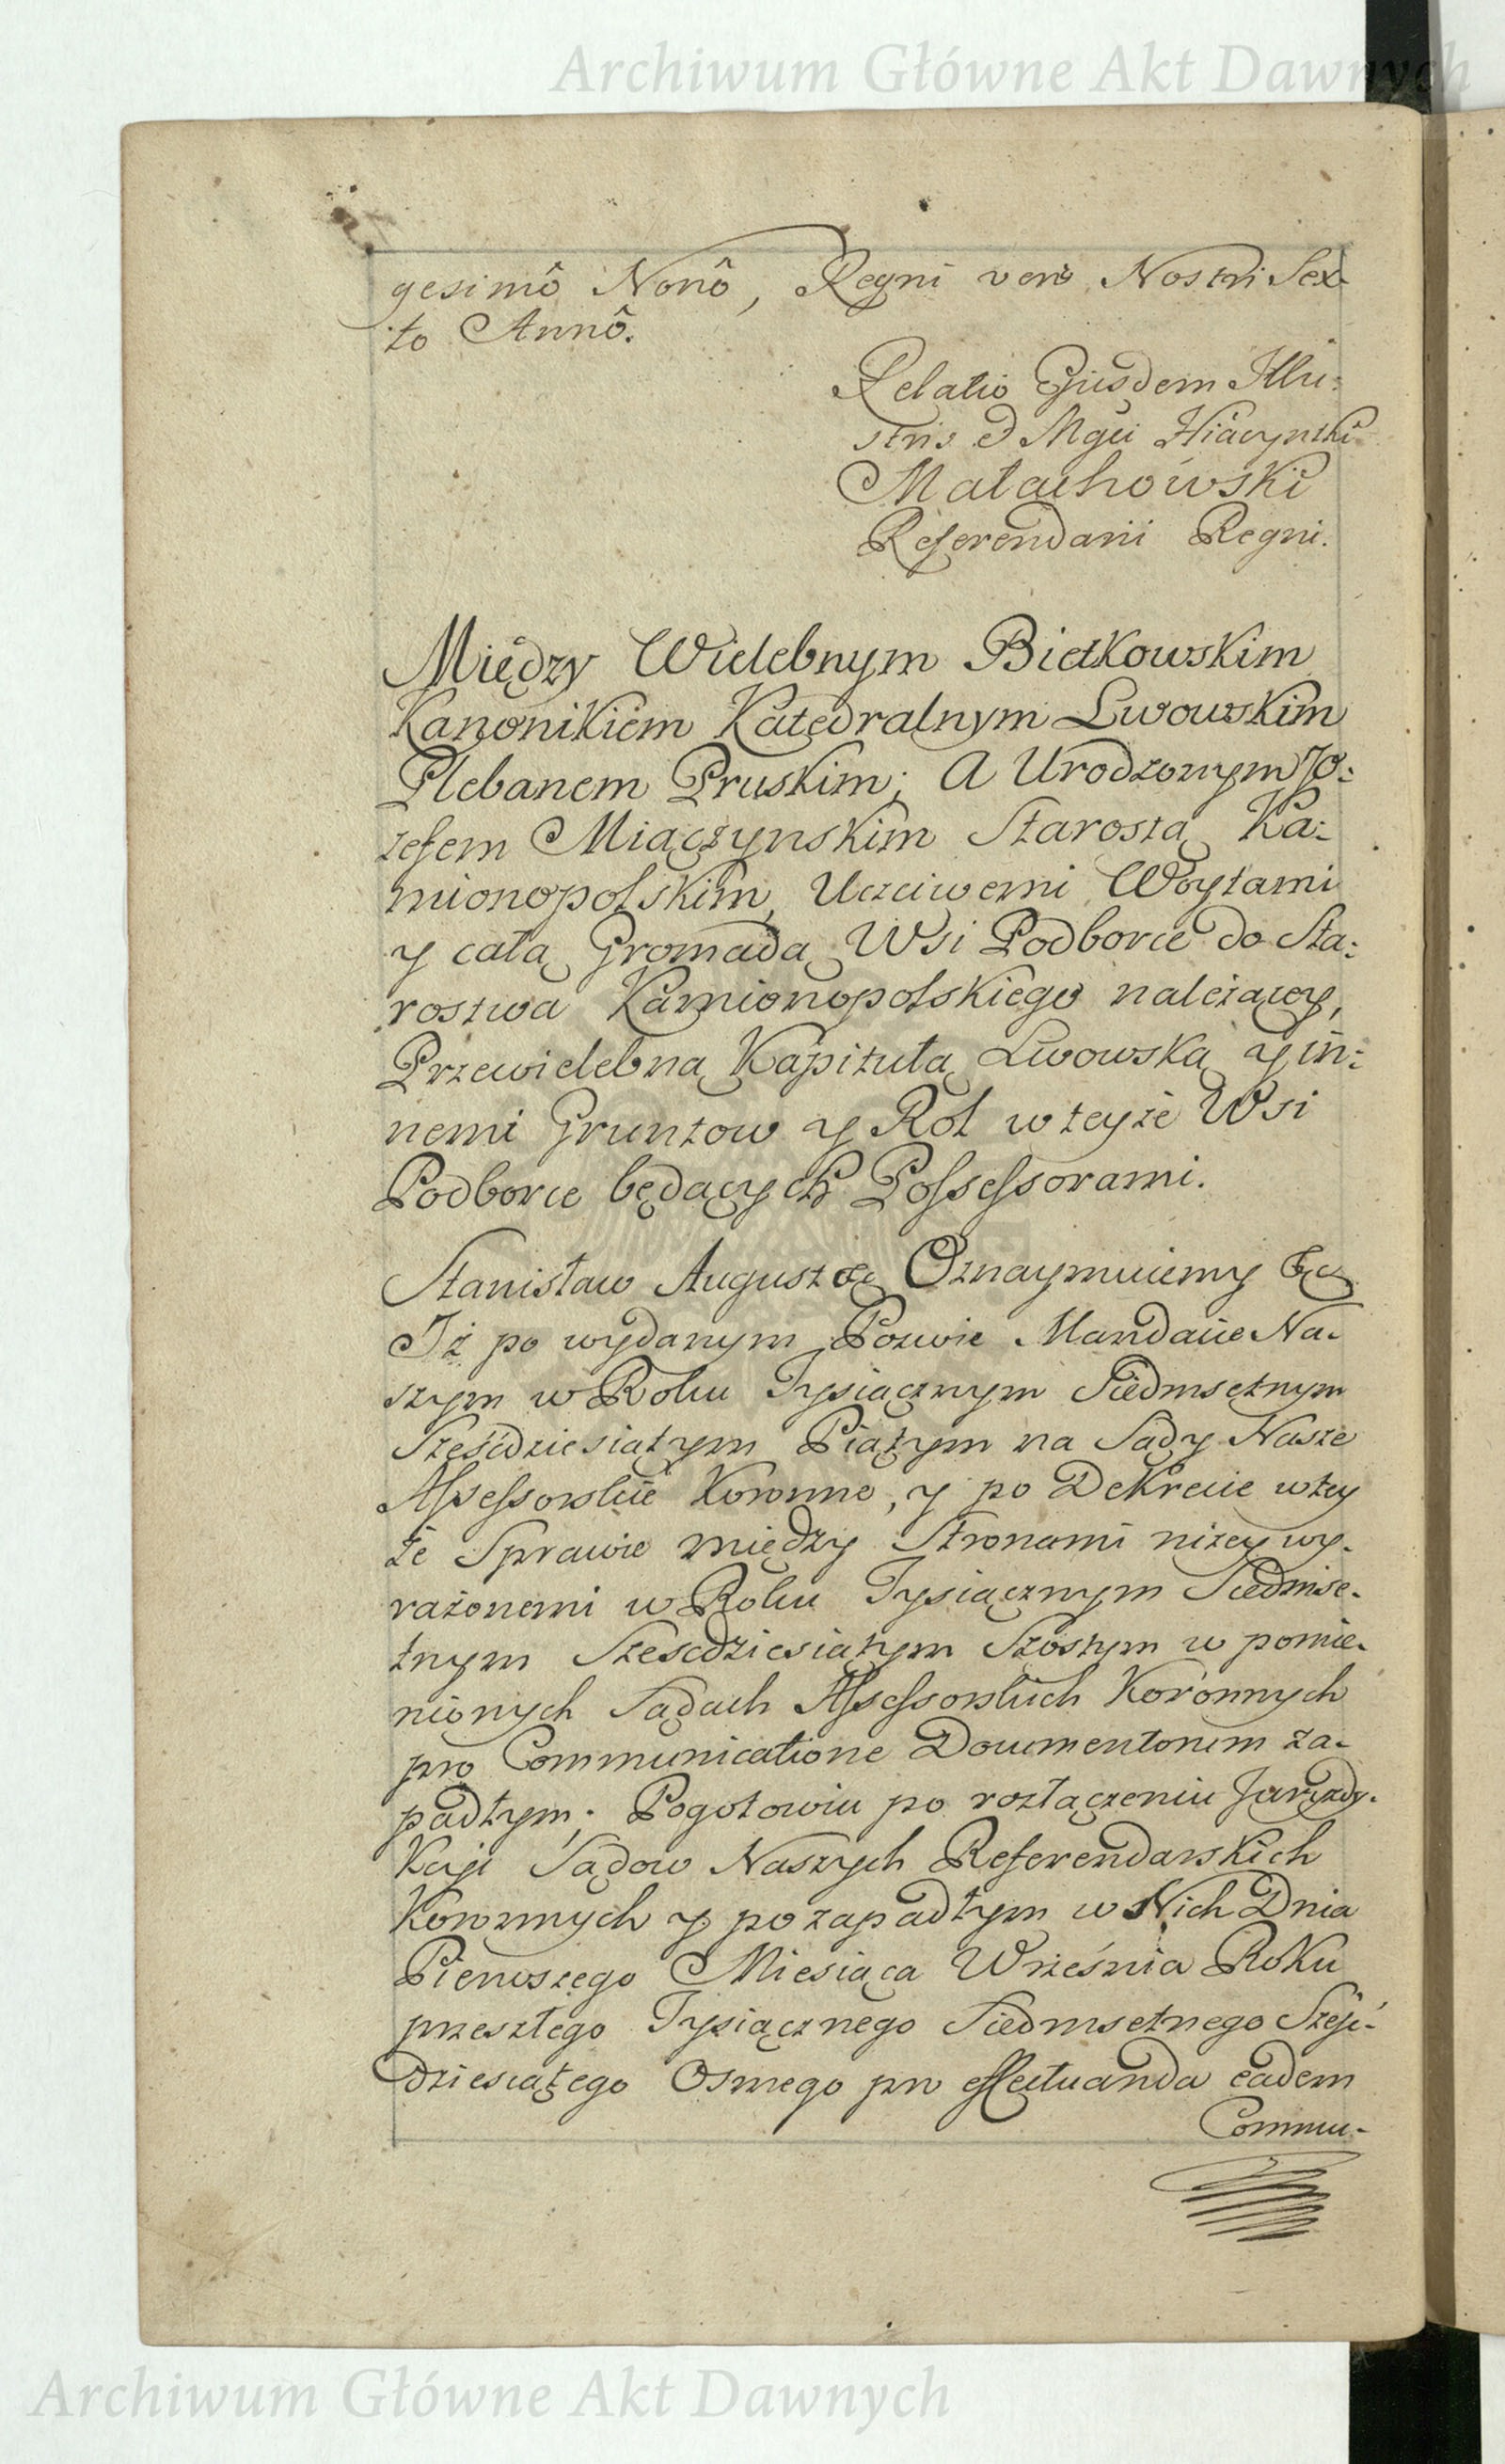 Archiwum Główne Akt Dawnych
gesimô Nonô, Regni verò Nostri Sex-
to Annô.
Relatio Ejusdem Illu:
stris & Mgci Hiacynthi
Małachowski
Referendarii Regni.
Między Wielebnym Biełkowskim
Kanonikiem Katedralnym Lwowskim
Plebanem Pruskim; A Urodzonym Jo:
zefem Miączynskim Starostą Ka:
mionopolskim, Uczciwemi Woytami
y całą Gromadą Wsi Podborce do Sta:
rostwa Kamionopolskiego należący,
Przewielebną Kapitułą Lwowską y in:
nemi Gruntow y Rol w teyże Wsi
Podborce będących Possessorami.
Stanisław August &c Oznaymuiemy &c
Iż po wydanym Pozwie Mandacie Na-
szym w Roku Tysiącznym Siedmsetnym
Sześćdziesiątym Piątym na Sądy Nasze
Assessorskie Koronne, y po Dekrecie w tey
że Sprawie między Stronami niżey wy-
rażonemi w Roku Tysiącznym Siedmse-
tnym Szescdziesiątym Szóstym w pomie-
nionych Sądach Assessorskich Koronnych
pro Communicatione Documentorum za-
padłym; Pogotowiu po rozłączeniu Juryzdy-
kcji Sądow Naszych Referendarskich
Koronnych y po zapadłym w Nich Dnia
Pierwszego Miesiąca Września Roku
przeszłego Tysiącznego Siedmsetnego Sześć-
dziesiątego Osmego pro effectuanda eadem
Commu-
Archiwum Główne Akt Dawnych